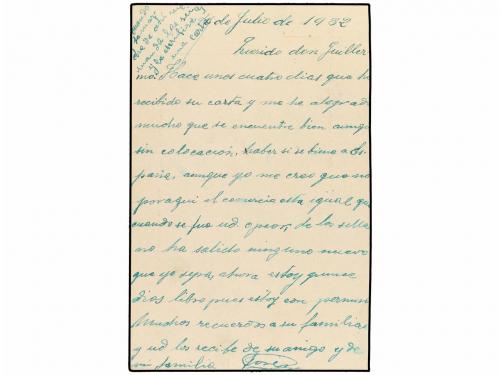 de Julio de 1932
Querido don Guiller
mo. Hace unos cuatro dias que he
recibido su carta y me ha alegrado
mucho que se encuentre bien aunque
sin colocación, haber si se biene a Es
paña, aunque yo me creo que no
por aqui el comercio esta igual que
cuando se fue ud. o peor, de los sellos
no ha salido ninguno nuevo
que yo sepa, ahora estoy quince
dias libre pues estoy con permiso
Muchos recuerdos a su familia
y ud. los recibe de su amigo y de
mi familia
una carta